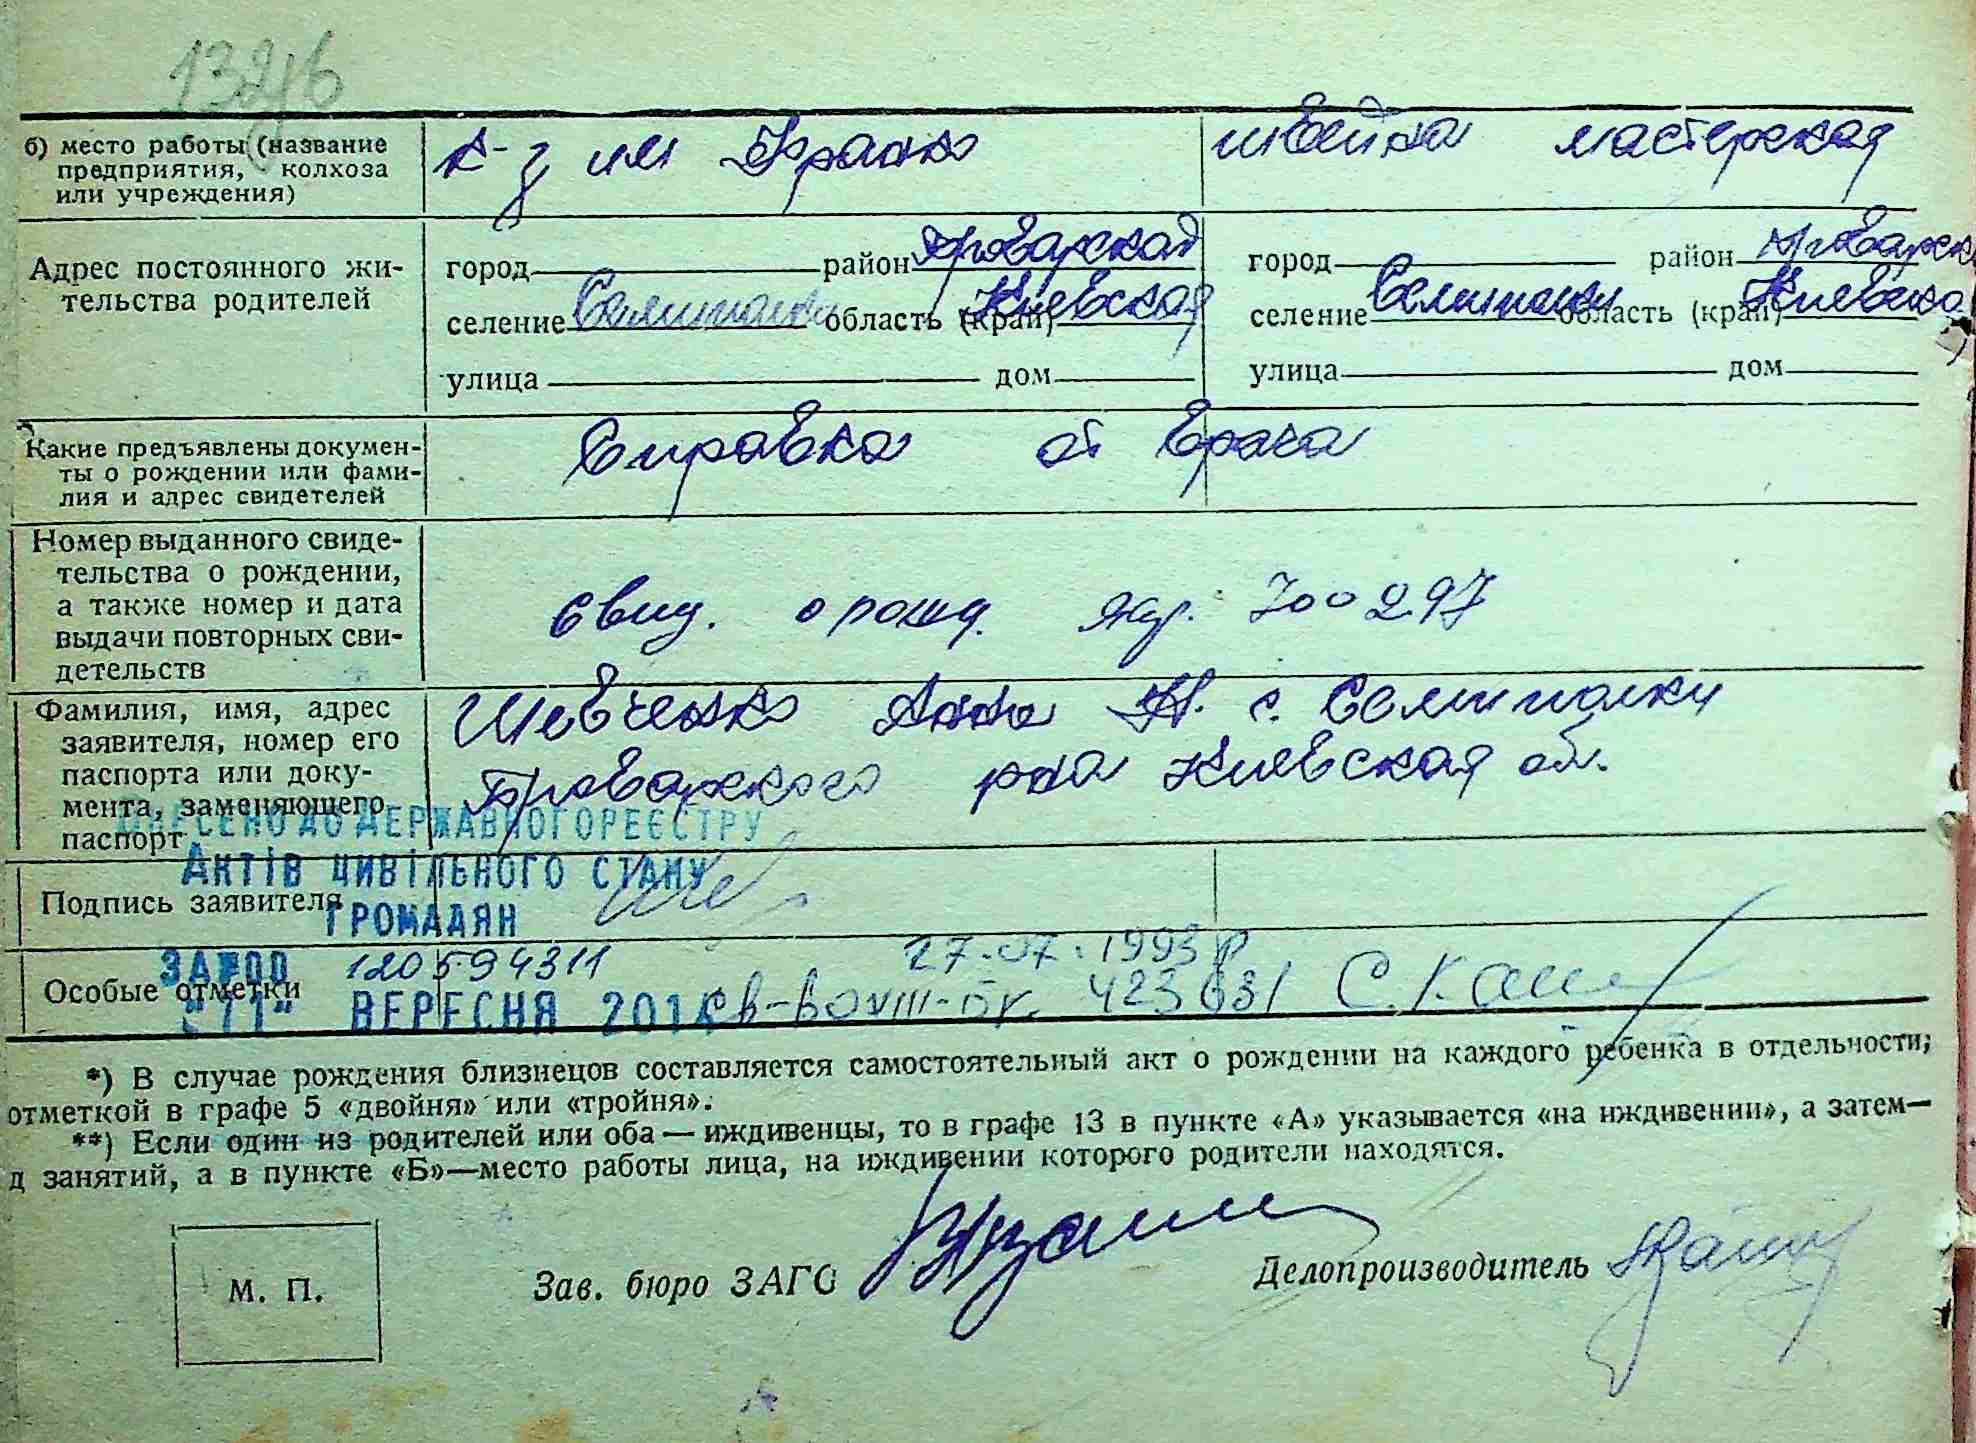 132/в
б) место работы (название предприятия, колхоза или учреждения) к-з им Франко швейна мастерская
Адрес постоянного жительства родителей
город район Броварской город район Броварск
селение Семиполки область (край) Киевская селение Семиполки область (край) Киевска
улица дом улица дом
Какие предъявлены документы о рождении или фамилия и адрес свидетелей Справка от врача
Номер выданного свидетельства о рождении, а также номер и дата выдачи повторных свидетельств свид. о рожд. 700297
Фамилия, имя, адрес заявителя, номер его паспорта или документа, заменяющего паспорт Шевченко Анна Н. с. Семиполки
Броварского р-на Киевская обл.
ВНЕСЕНО ДО ДЕРЖАВНОГО РЕЄСТРУ
АКТІВ ЦИВІЛЬНОГО СТАНУ
ГРОМАДЯН
Подпись заявителя
ЗА №00 120594311 27.07.1993 р
Особые отметки
"11" ВЕРЕСНЯ 2014 св-во VIII-БК. 423631
*) В случае рождения близнецов составляется самостоятельный акт о рождении на каждого ребенка в отдельности;
отметкой в графе 5 «двойня» или «тройня».
**) Если один из родителей или оба — иждивенцы, то в графе 13 в пункте «А» указывается «на иждивении», а затем—
д занятий, а в пункте «Б»—место работы лица, на иждивении которого родители находятся.
М. П. Зав. бюро ЗАГС Делопроизводитель